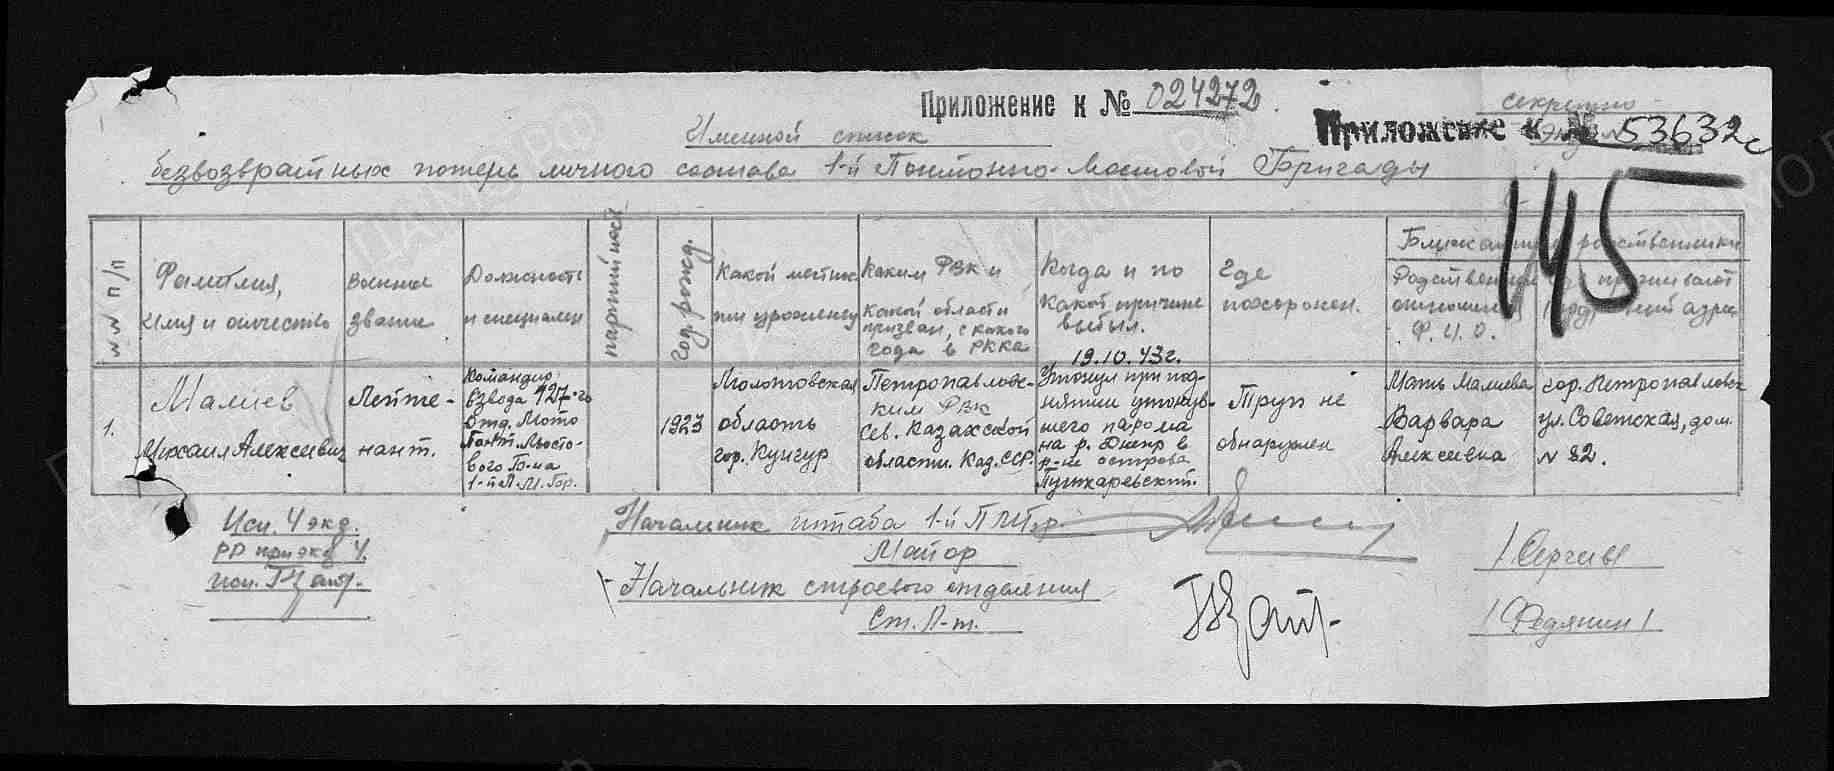 Приложение к № 024272
секретно
Приложение к № 53632с
Именной список
безвозвратных потерь личного состава 1-й Понтонно-Мостовой Бригады
145
№№ п/п
Фамилия,
имя и отчество
Военное
звание
Должность
и специальн
партийност
год рожд.
Какой местнос
ти уроженец
Каким РВК и
какой области
призван, с какого
года в РККА
Когда и по
какой причине
выбыл.
Где
похоронен.
Ближайшие родственники
Родственное
отношение
Ф.И.О.
Где проживают
адрес
1.
Малиев
Михаил Алексеевич
Лейте-
нант.
Командир
взвода 127-го
Отд. Мото
Понт. Мосто-
вого Б-на
1-й П.М.Бр.
1923
Молотовская
область
гор. Кунгур
Петропавловс-
ким РВК
Сев. Казахской
области. Каз.ССР.
19.10.43г.
Утонул при под-
нятии утонув-
шего парома
на р. Днепр в
р-не острова
Пушкаревский.
Труп не
обнаружен
Мать Малиева
Варвара
Алексеевна
гор. Петропавловск
ул. Советская, дом.
№ 82.
Исп. 4 экз.
РР при экз 4.
исп.
Начальник штаба 1-й ПМБр.
Майор
/Сергеев
Начальник строевого отделения
Ст. Л-т.
/Федянин/